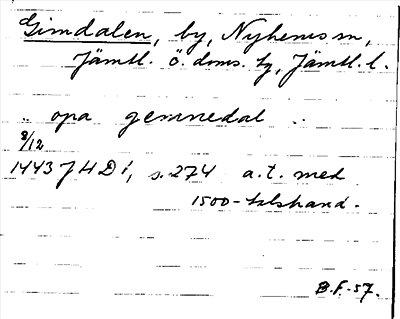 Gimdalen, by, Nyhems sn,
Jämtl. ö. doms. tg, Jämtl. l.
.. opa gemnedal ..
8/12
1443 JHD 1, s. 274 a.t. med
1500-talshand.
B.F.-57.